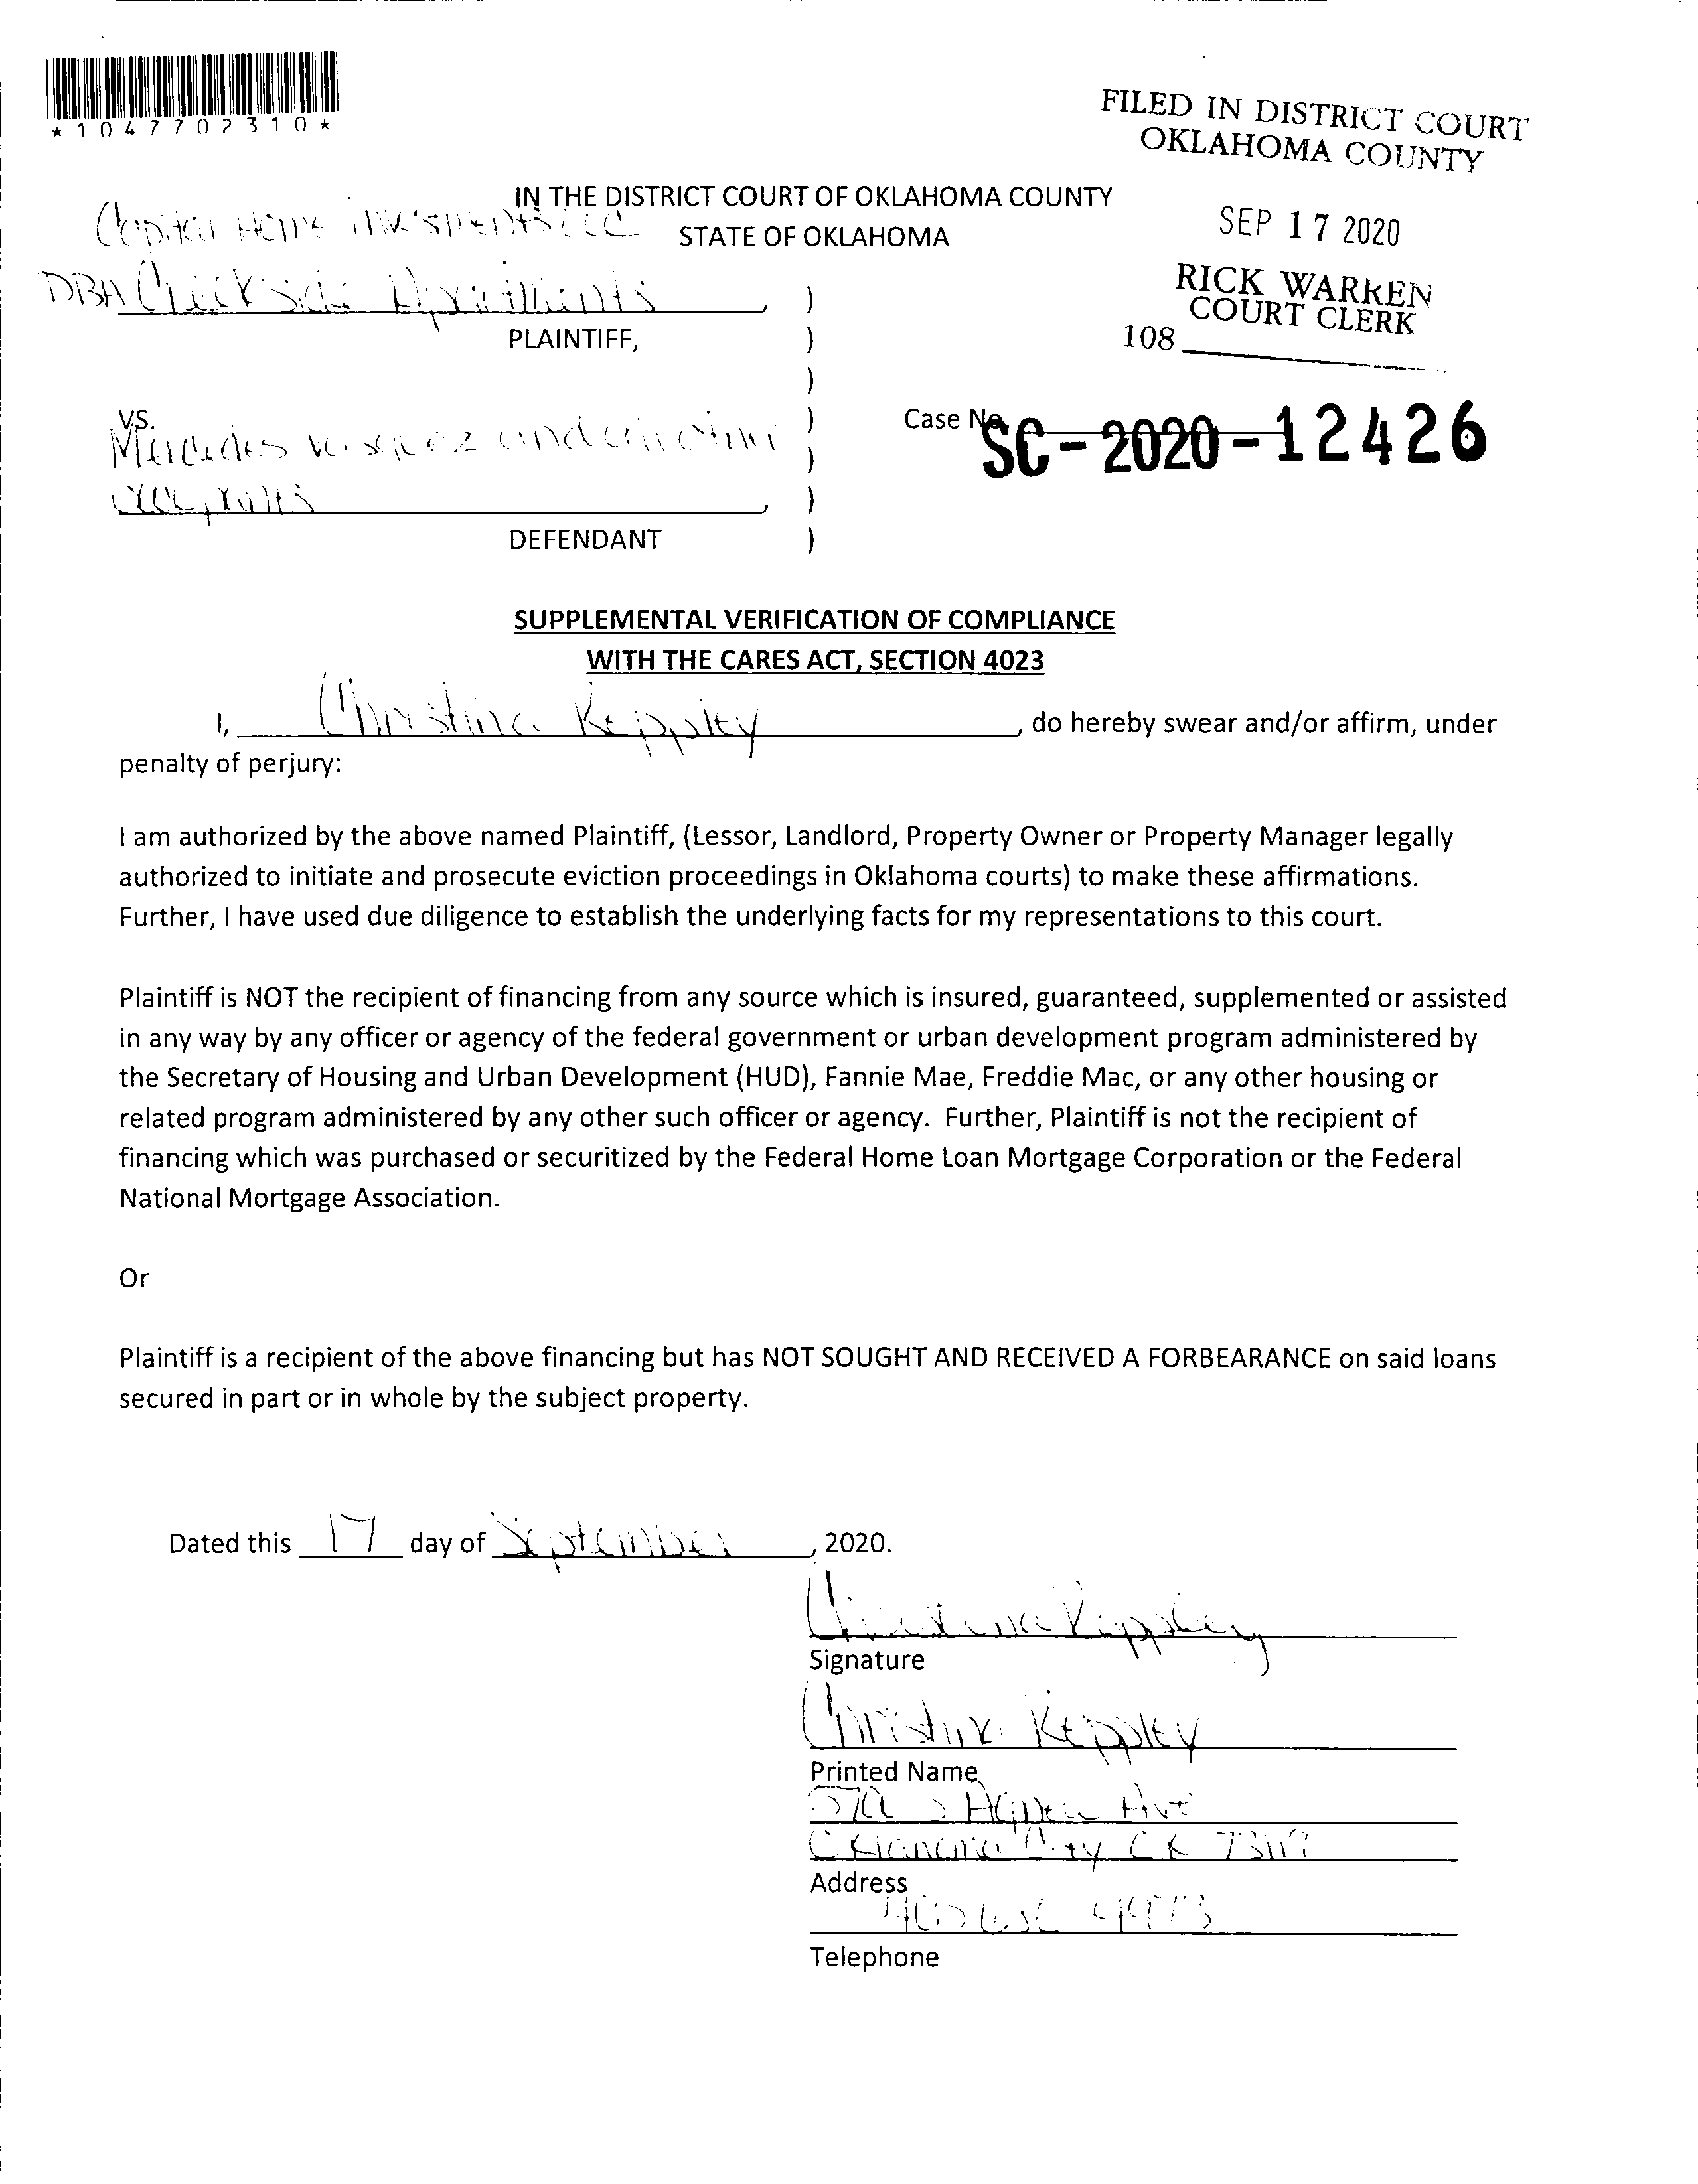 *1047702310*
FILED IN DISTRICT COURT
OKLAHOMA COUNTY
SEP 17 2020
RICK WARREN
COURT CLERK
108
IN THE DISTRICT COURT OF OKLAHOMA COUNTY
STATE OF OKLAHOMA
Capital Home Investments LLC
DBA Creekside Apartments,
PLAINTIFF,
VS.
Mercedes and
occupants,
DEFENDANT
)
)
)
)
)
)
)
Case No. SC-2020-12426
SUPPLEMENTAL VERIFICATION OF COMPLIANCE
WITH THE CARES ACT, SECTION 4023
I, Christina Keppley, do hereby swear and/or affirm, under
penalty of perjury:
I am authorized by the above named Plaintiff, (Lessor, Landlord, Property Owner or Property Manager legally
authorized to initiate and prosecute eviction proceedings in Oklahoma courts) to make these affirmations.
Further, I have used due diligence to establish the underlying facts for my representations to this court.
Plaintiff is NOT the recipient of financing from any source which is insured, guaranteed, supplemented or assisted
in any way by any officer or agency of the federal government or urban development program administered by
the Secretary of Housing and Urban Development (HUD), Fannie Mae, Freddie Mac, or any other housing or
related program administered by any other such officer or agency. Further, Plaintiff is not the recipient of
financing which was purchased or securitized by the Federal Home Loan Mortgage Corporation or the Federal
National Mortgage Association.
Or
Plaintiff is a recipient of the above financing but has NOT SOUGHT AND RECEIVED A FORBEARANCE on said loans
secured in part or in whole by the subject property.
Dated this 17 day of September, 2020.
Christina Keppley
Signature
Christina Keppley
Printed Name
S Ave
Oklahoma City OK 73119
Address
405
Telephone